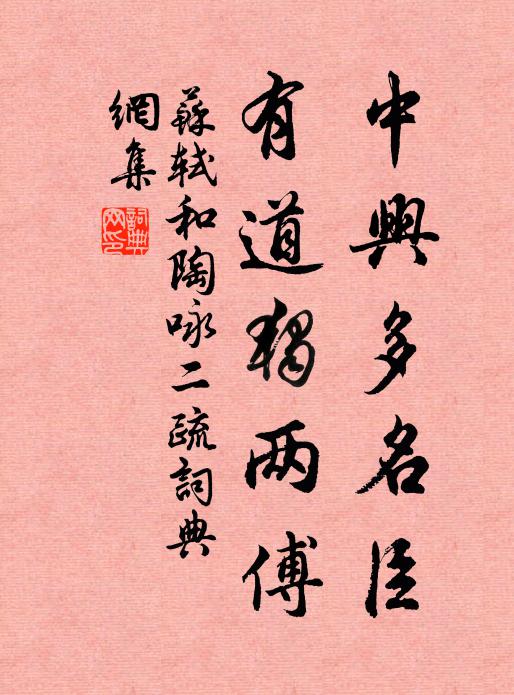 中興多名臣
有道獨两傅
蘇軾和陶咏二疏詞典
網集
詞典
网印